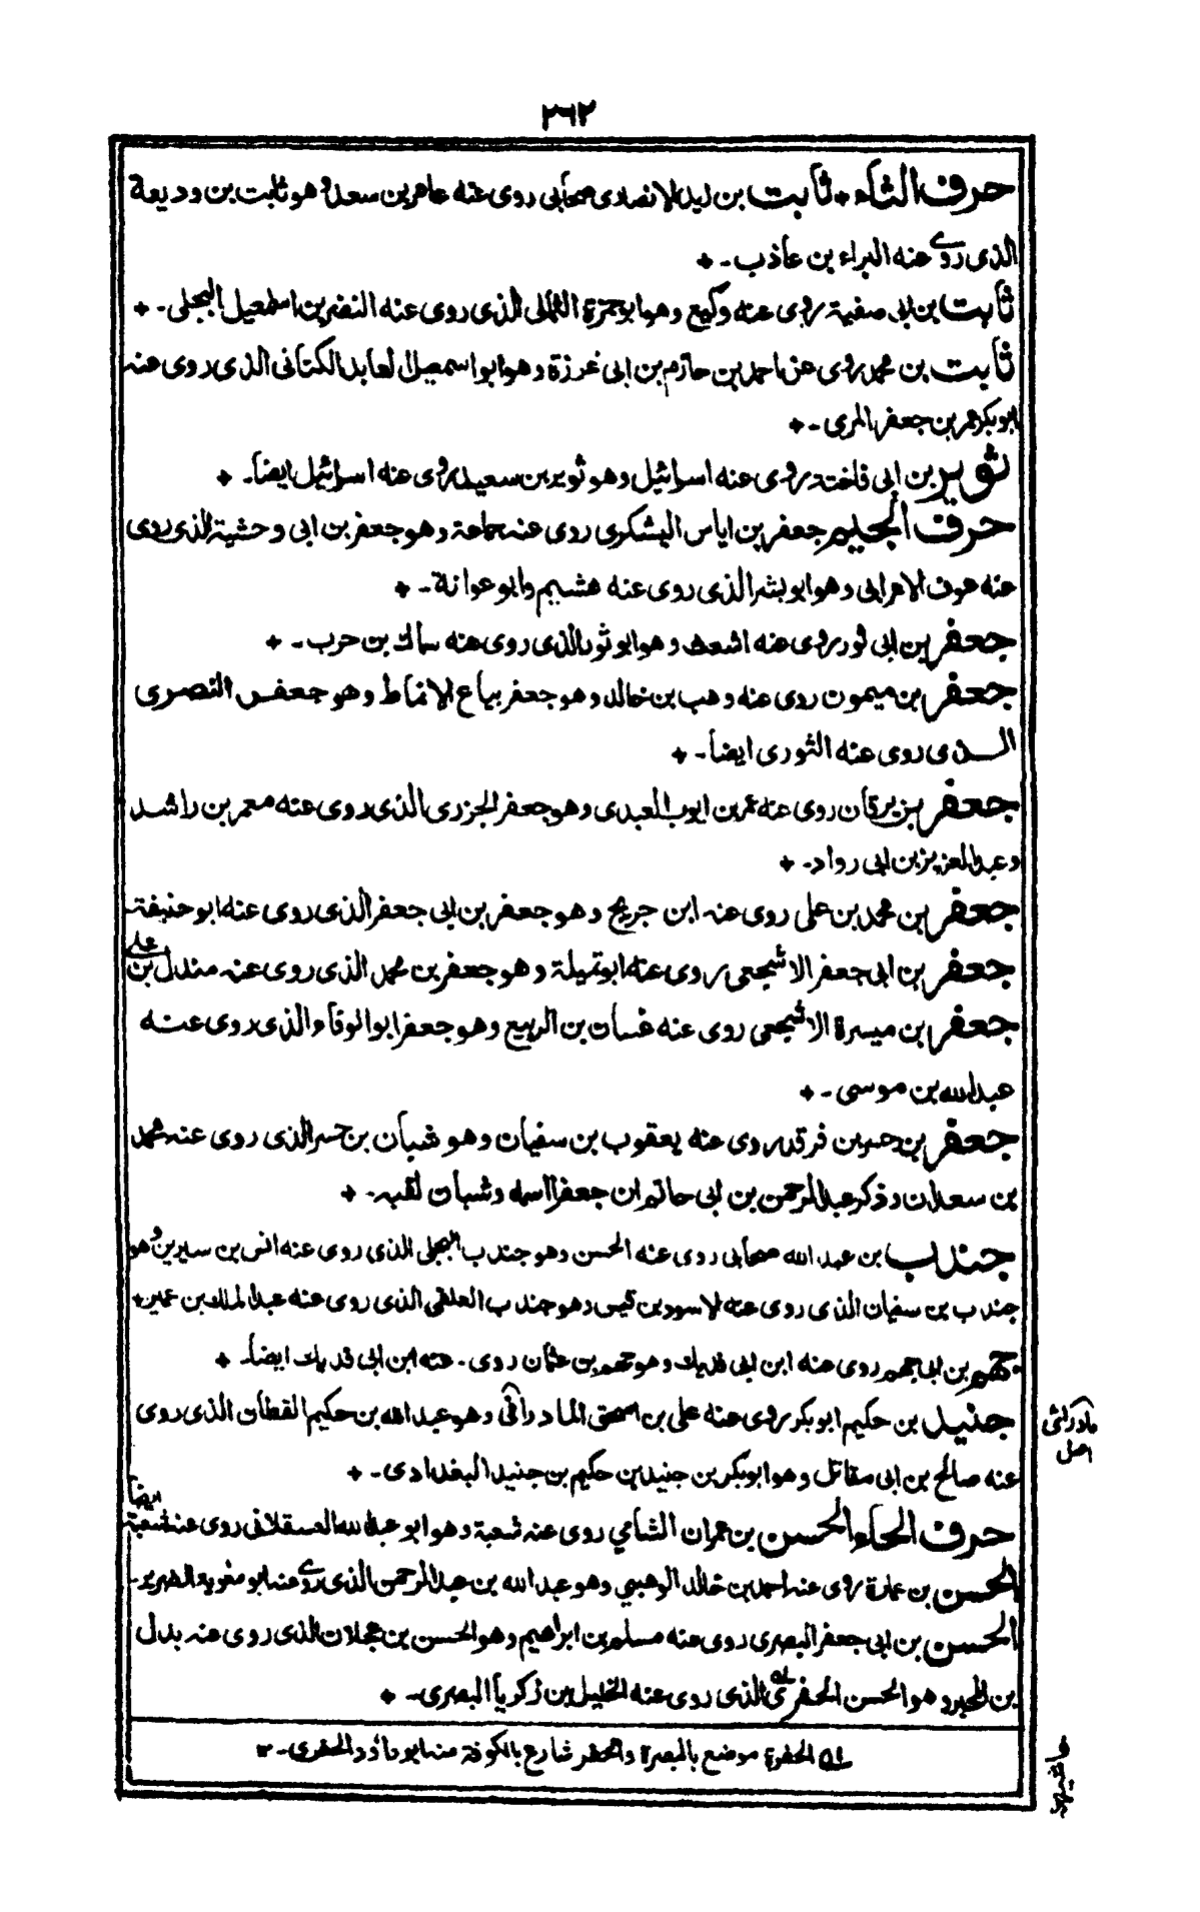 ٣٦٢
حرف الثاء + ثابت بن زيد الانصاری صحابی روی عنه عامر بن سعد وهو ثابت بن وديعة
الذی روی عنه البراء بن عاذب ـ +
ثابت بن ابی صفية روی عنه وكيع وهو ابو حمزة الثمالی الذی روی عنه النضر بن اسمعيل البجلی ـ +
ثابت بن محمد روی عنه احمد بن حازم بن ابی غرزة وهو ابو اسمعيل العابد الكنانی الذی روی عنه
ابو بكر عمر بن جعفر المری ـ +
ثوير بن ابی فاخته روی عنه اسرائيل وهو ثوير بن سعيد روی عنه اسرائيل ايضاً ـ +
حرف الجيم جعفر بن اياس اليشكری روی عنه جماعة وهو جعفر بن ابی وحشية الذی روی
عنه عوف الاعرابی وهو ابو بشر الذی روی عنه هشيم وابو عوانة ـ +
جعفر بن ابی ثور روی عنه اشعث وهو ابو ثور الذی روی عنه سماك بن حرب ـ +
جعفر بن ميمون روی عنه وهب بن خالد وهو جعفر بياع الانماط وهو جعفر النصری
الذی روی عنه الثوری ايضاً ـ +
جعفر بن برقان روی عنه عمر بن ايوب العبدی وهو جعفر الجزری الذی روی عنه معمر بن راشد
وعبد العزيز بن ابی رواد ـ +
جعفر بن محمد بن علی روی عنه ابن جريج وهو جعفر بن ابی جعفر الذی روی عنه ابو حنيفة
جعفر بن ابی جعفر الاشجعی روی عنه ابو تميلة وهو جعفر بن محمد الذی روی عنه مندل بن علی
جعفر بن ميسرة الاشجعی روی عنه غسان بن الربيع وهو جعفر ابو الوفاء الذی روی عنه
عبد الله بن موسی ـ +
جعفر بن جسر بن فرقد روی عنه يعقوب بن سفيان وهو شبان بن جسر الذی روی عنه محمد
بن سعدان وذكر عبد الرحمن بن ابی حاتم ان جعفرا اسمه وشبان لقبه ـ +
جندب بن عبد الله صحابی روی عنه الحسن وهو جندب البجلی الذی روی عنه انس بن سيرين وهو
جندب بن سفيان الذی روی عنه الاسود بن قيس وهو جندب العلقی الذی روی عنه عبد الملك بن عمير +
جهم بن ابی جهم روی عنه ابن ابی فديك وهو جهم بن عثمان روی ـ عنه ابن ابی فديك ايضاً ـ +
جنيد بن حكيم ابو بكر روی عنه علی بن اسحق المادرائی وهو عبد الله بن حكيم القطان الذی روی
مادرائی
اصل
عنه صالح بن ابی مقاتل وهو ابو بكر بن جنيد بن حكيم بن جنيد البغدادی ـ +
حرف الحاء الحسن بن عمران الشامی روی عنه شعبة وهو ابو عبد الله العسقلانی روی عنه شعبة ايضاً
الحسن بن عمارة روی عنه احمد بن خالد الوهبی وهو عبد الله بن عبد الرحمن الذی روی عنه ابو معوية الضرير ـ
الحسن بن ابی جعفر البصری روی عنه مسلم بن ابراهيم وهو الحسن بن عجلان الذی روی عنه بدل
بن المحبر وهو الحسن الجفری الذی روی عنه الخليل بن زكريا البصری ـ +
له الجفرة موضع بالبصرة والحفر شارع بالكوفة منه ابو داؤد الحفری ـ